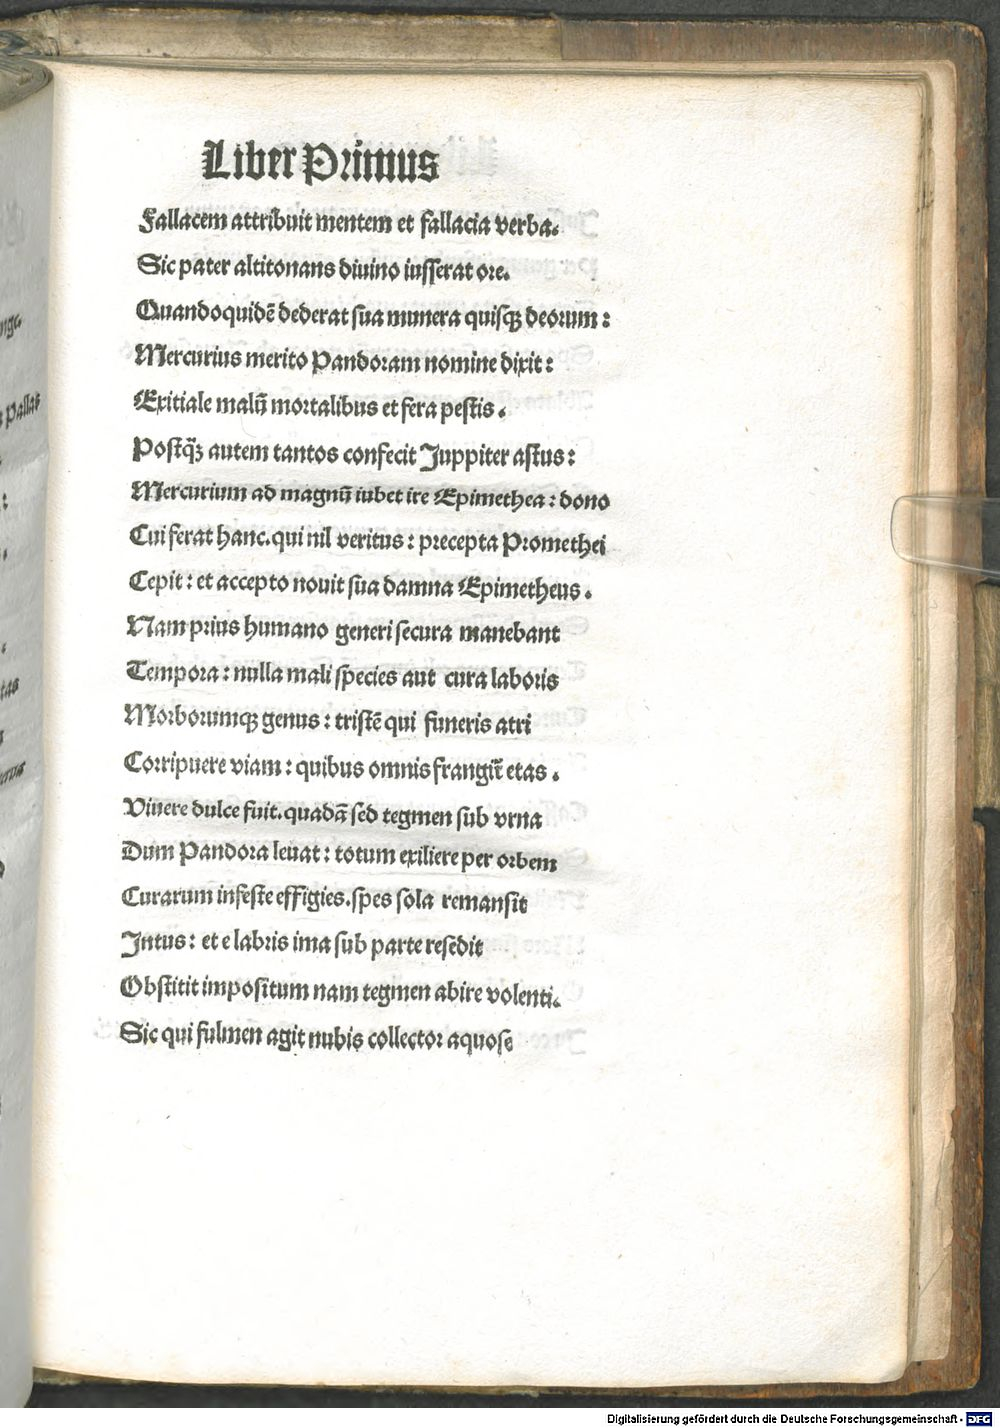 Liber Primus
Fallacem attribuit mentem et fallacia verba.
Sic pater altitonans diuino iusserat ore.
Quandoquidē dederat sua munera quisqꝫ deorum:
Mercurius merito Pandoram nomine dixit:
Exitiale malū mortalibus et fera pestis.
Postq̄ꝫ autem tantos confecit Juppiter astus:
Mercurium ad magnū iubet ire Epimethea: dono
Cui ferat hanc. qui nil veritus: precepta Promethei
Cepit: et accepto nouit sua damna Epimetheus.
Nam prius humano generi secura manebant
Tempora: nulla mali species aut cura laboris
Morborumqꝫ genus: tristē qui funeris atri
Corripuere viam: quibus omnis frangit̄ etas.
Viuere dulce fuit. quadā sed tegmen sub vrna
Dum Pandora leuat: totum exiliere per orbem
Curarum infeste effigies. spes sola remansit
Intus: et e labris ima sub parte resedit
Obstitit impositum nam tegmen abire volenti.
Sic qui fulmen agit nubis collector aquose
nge.
Pallas
:
tas
Digitalisierung gefördert durch die Deutsche Forschungsgemeinschaft - DFG